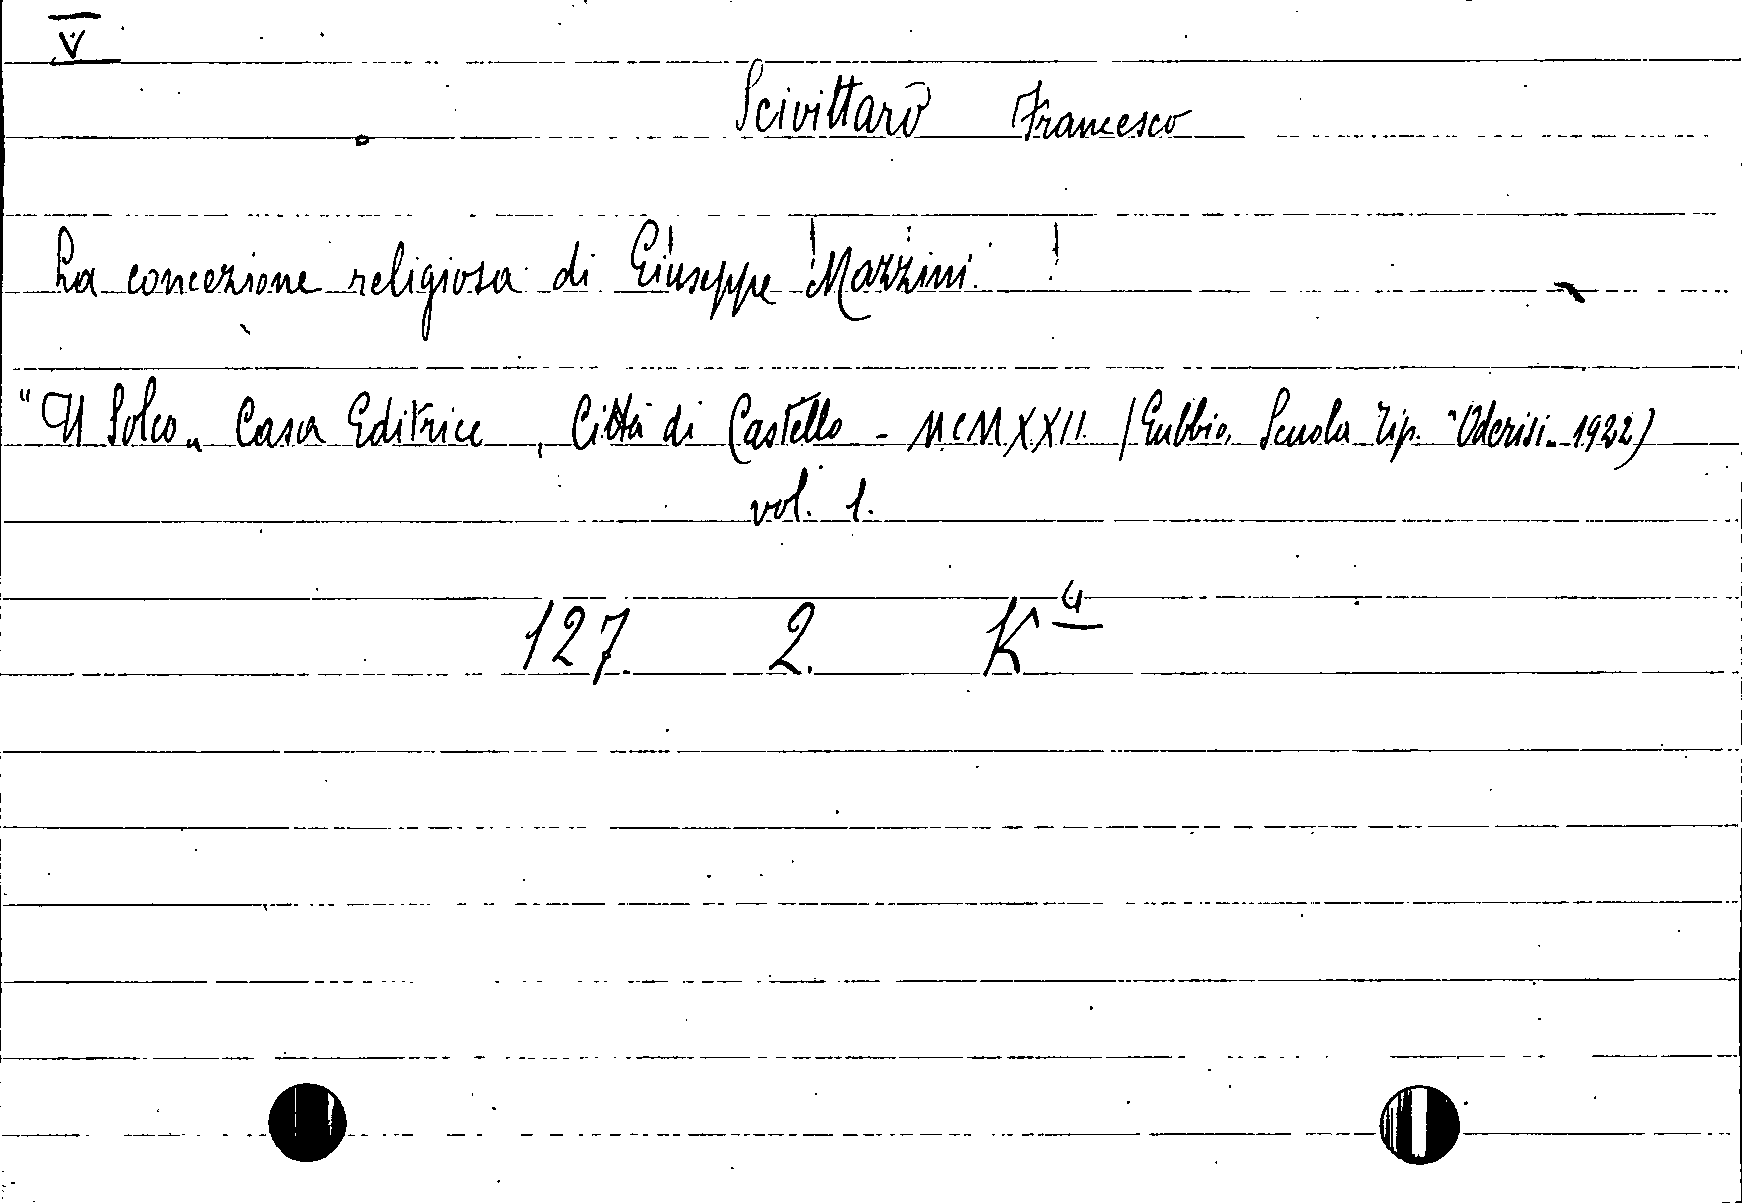 V
Scivittaro Francesco
La concezione religiosa di Giuseppe Mazzini.
"Il Solco„ Casa Editrice, Città di Castello - MCMXXII. (Gubbio, Scuola Tip. "Oderisi„ 1922)
vol. 1.
127. 2. K⁴